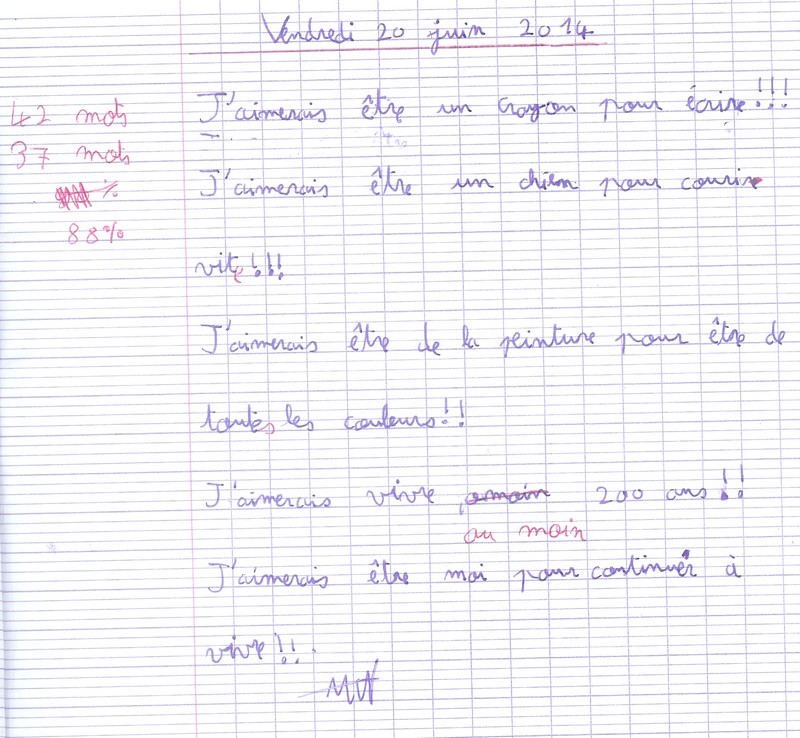 Vendredi 20 juin 2014
42 mots
J'aimerais être un crayon pour écrire!!!
37 mots
%
J'aimerais être un chien pour courire
88%
vite!!!
J'aimerais être de la peinture pour être de
toutes les couleurs!!
J'aimerais vivre omoin 200 ans!!
au moin
J'aimerais être moi pour continuer à
vivre!!